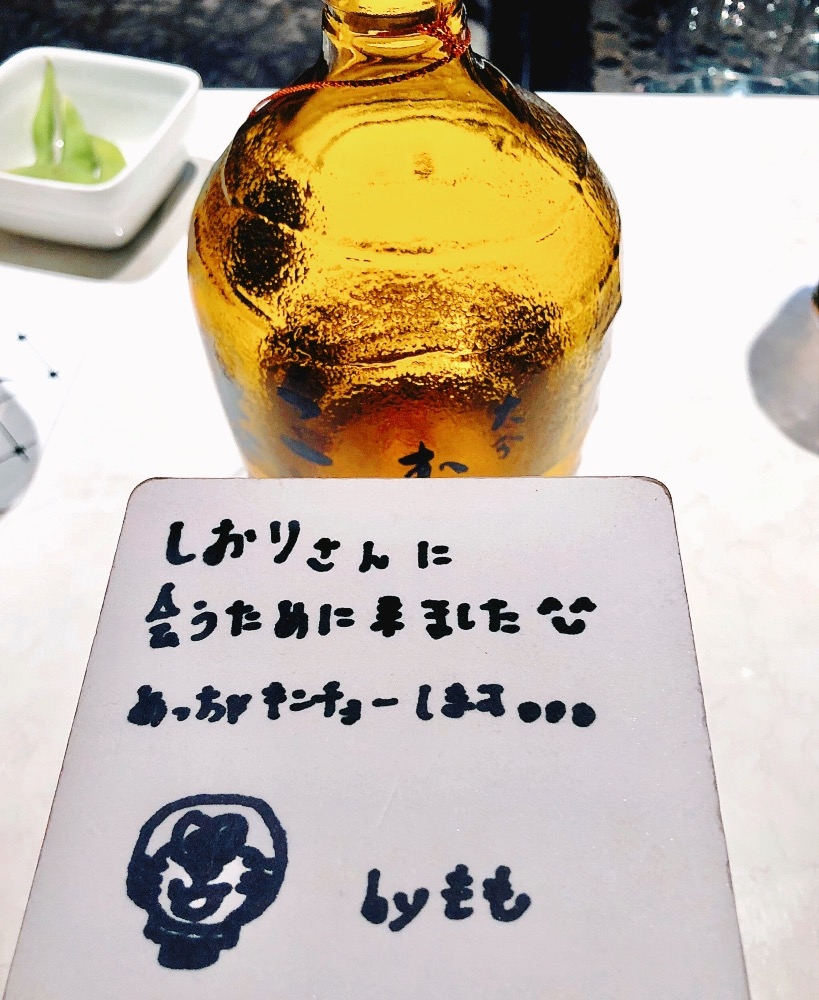 しおりさんに
会うために来ました^^
めっちゃキンチョーします...
byもも